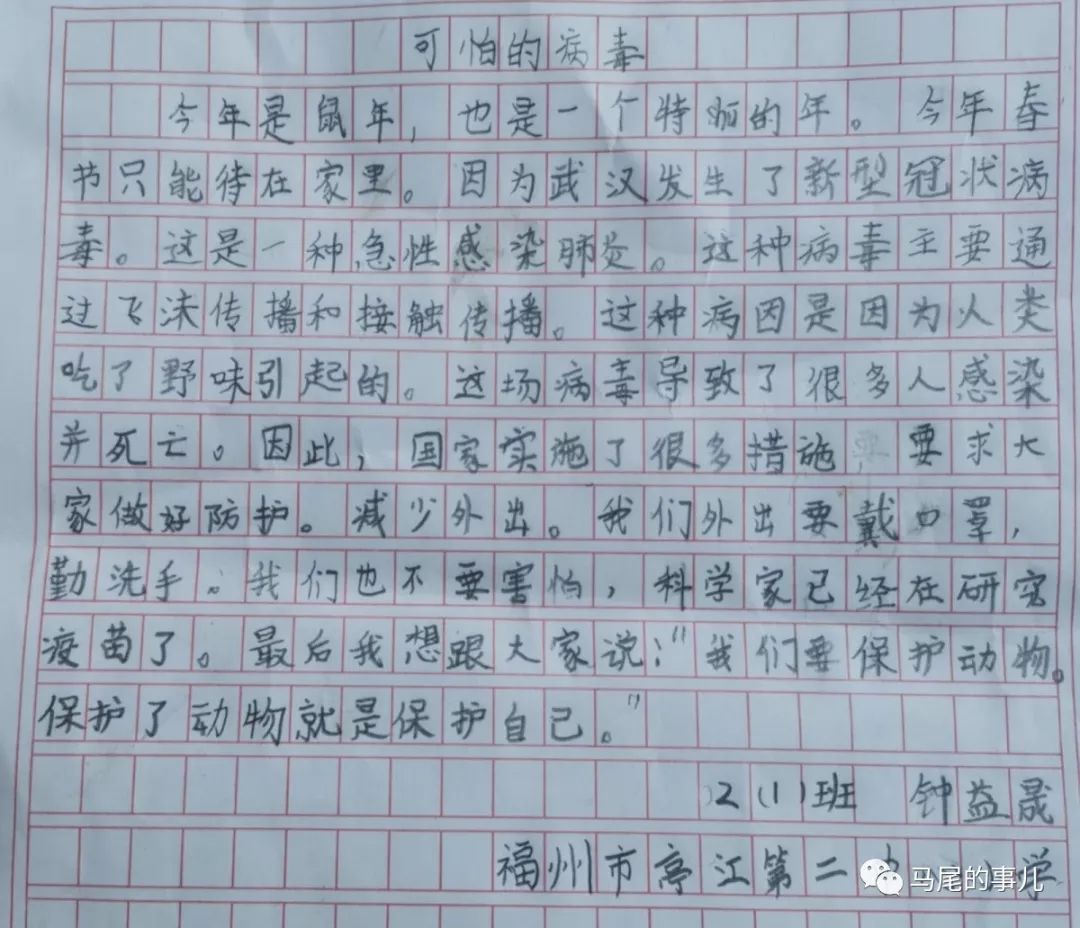 可怕的病毒
今年是鼠年，也是一个特别的年。今年春
节只能待在家里。因为武汉发生了新型冠状病
毒。这是一种急性感染肺炎。这种病毒主要通
过飞沫传播和接触传播。这种病因是因为人类
吃了野味引起的。这场病毒导致了很多人感染
并死亡。因此，国家实施了很多措施，要求大
家做好防护。减少外出。我们外出要戴口罩，
勤洗手。我们也不要害怕，科学家已经在研究
疫苗了。最后我想跟大家说："我们要保护动物。
保护了动物就是保护自己。"
2（1）班 钟益晟
福州市亭江第二 小学
马尾的事儿